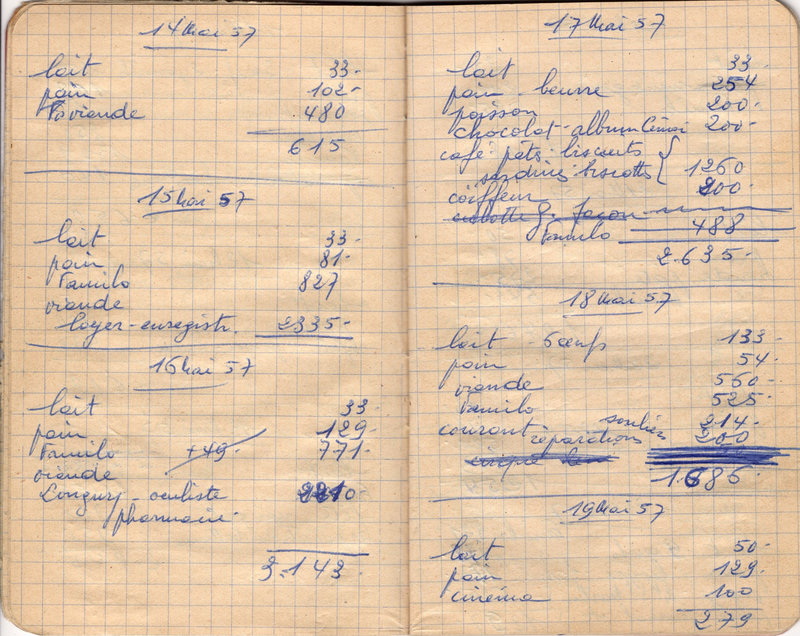 14 Mai 57
lait 33-
pain 102-
viande 480
615
15 Mai 57
lait 33-
pain 81-
Familo 827
viande
loyer-enregistr. 2335-
16 Mai 57
lait 33-
pain 129-
Familo +49- 771-
viande
oculiste 2210
pharmacie
3.143-
17 Mai 57
lait 33-
pain - beurre 254
poisson 200-
chocolat - album 200-
café pâté biscuits
sardines biscottes 1260
coiffeur 200-
Familo 488
2.635-
18 Mai 57
lait - 6 oeufs 133-
pain 54-
viande 560-
Familo 525-
courant 214-
réparation souliers 200
1.686-
19 Mai 57
lait 50-
pain 129-
cinéma 100
279